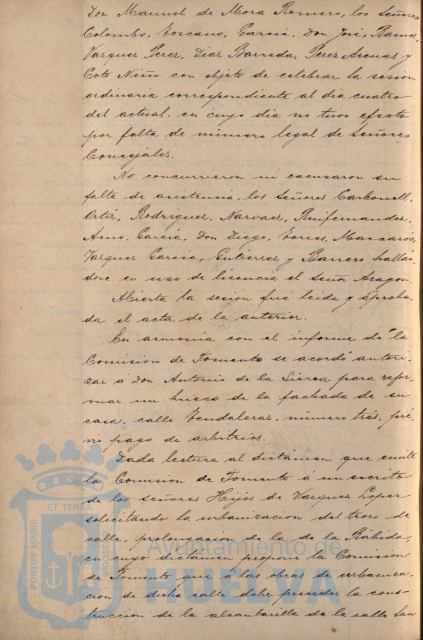 Don Manuel de Mora Romero, los Señores
Colombo, Toscano, García, Don José, Ramos,
Vazquez Perez, Diaz Barreda, Perez Arenas, y
Coto Niño con objeto de celebrar la sesión
ordinaria correspondiente al día cuatro
del actual, en cuyo día no tuvo efecto
por falta de número legal de Señores
Concejales.
No concurrieron ni excusaron su
falta de asistencia, los Señores Carbonell,
Ortiz, Rodriguez, Narvaez, Ruifernandez,
García, Don Diego, Torres, Macarios,
Vazquez García, Gutierrez y Barrero hallan
dose en uso de licencia el Señor Aragon.
Abierta la sesión fué leida y aproba-
da el acta de la anterior.
En armonia con el informe de la
Comisión de Fomento se acordó autori-
zar á Don Antonio de la Sierra para refor-
mar un hueco de la fachada de su
casa, calle Vendaleras, número tres, pré-
vio pago de arbitrios.
Dada lectura al dictámen que emite
la Comisión de Fomento á un escrito
de los señores Hijos de Vazquez Lopez
solicitando la urbanización del trozo de
calle, prolongación de la de la Rábida,
en cuyo dictámen propone la Comisión
de Fomento que á las obras de urbaniza-
ción de dicha calle debe preceder la cons-
trucción de la alcantarilla de la calle San
PORTUS MARIS
ET TERRAE
CUSTODIA
Ayuntamiento de
HUELVA